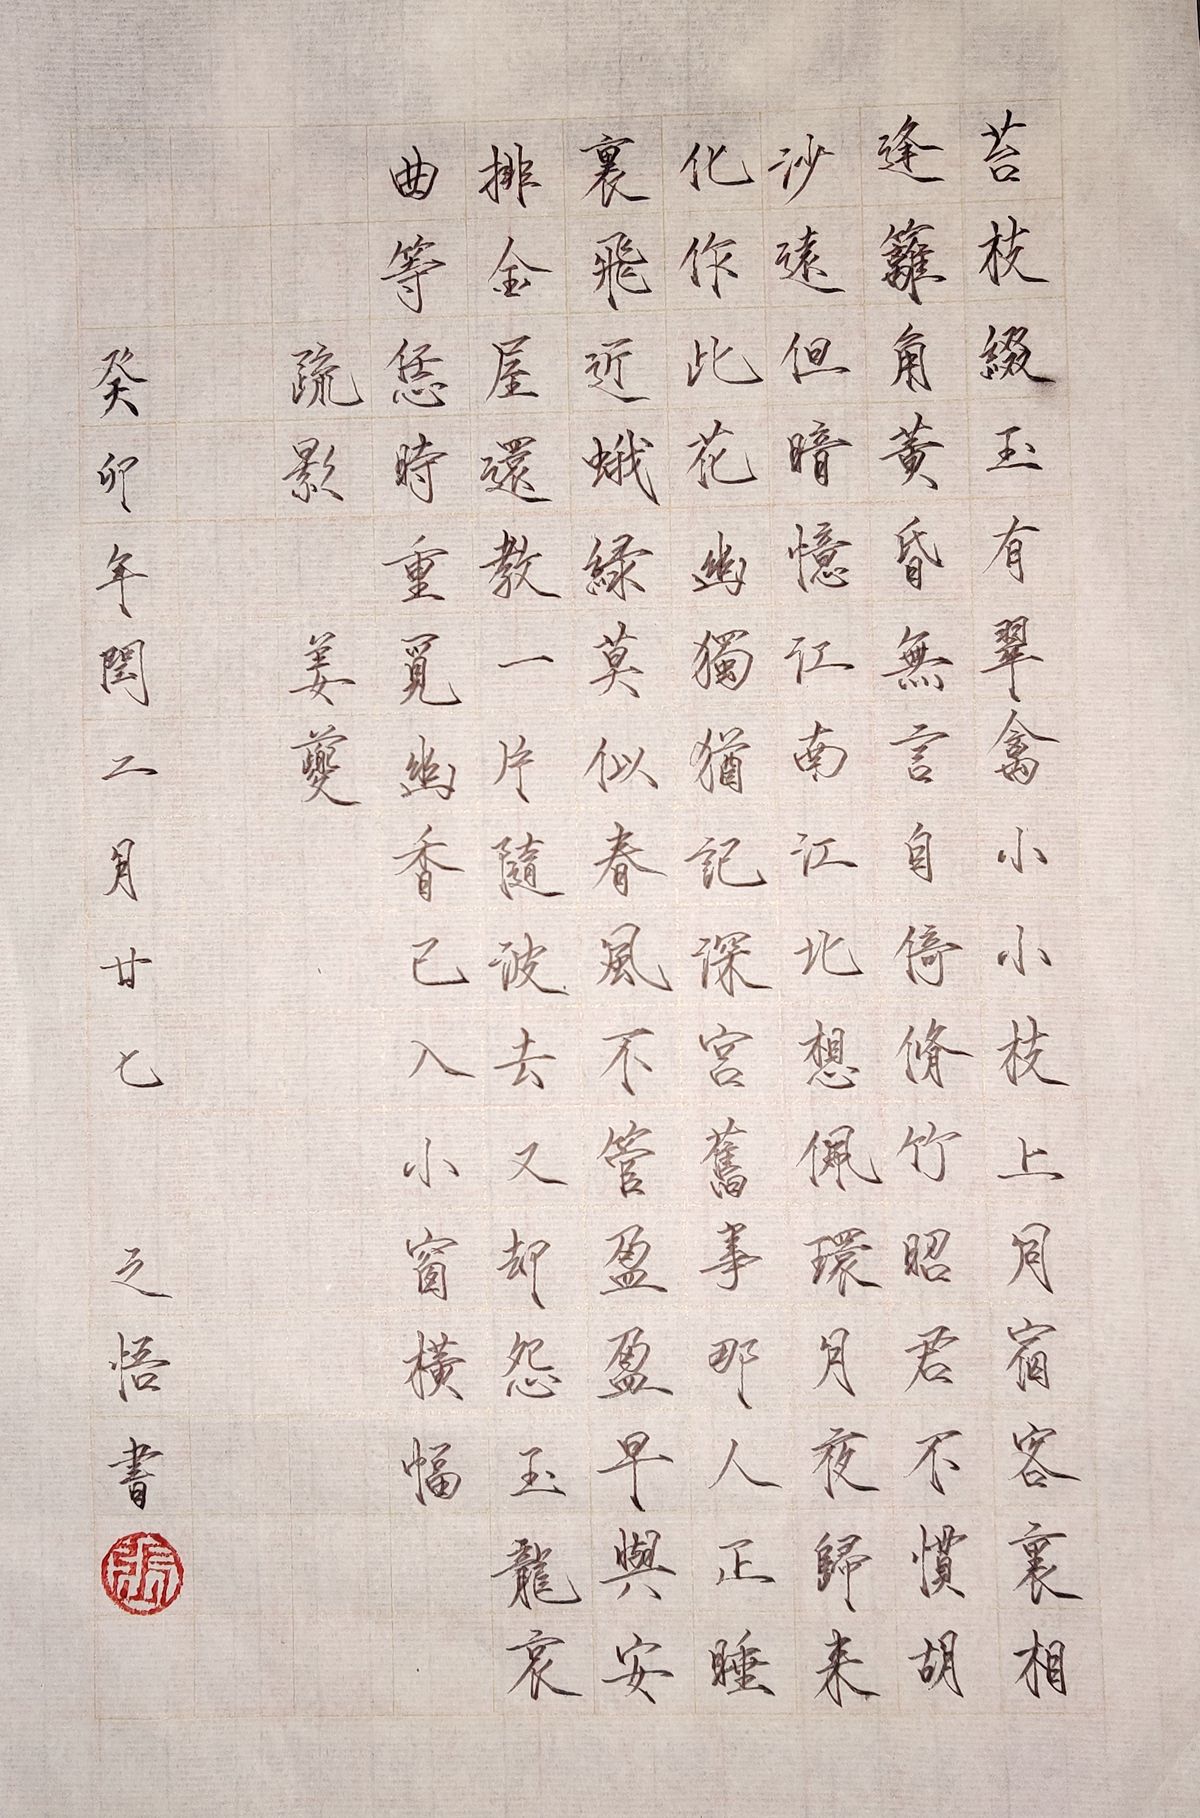 苔枝綴玉有翠禽小小枝上同宿客裏相
逢籬角黃昏無言自倚脩竹昭君不慣胡
沙遠但暗憶江南江北想佩環月夜歸来
化作此花幽獨猶記深宮舊事那人正睡
裏飛近蛾綠莫似春風不管盈盈早與安
排金屋還教一片隨波去又却怨玉龍哀
曲等恁時重覓幽香已入小窗橫幅
疏影 姜夔
癸卯年閏二月廿七 之悟書